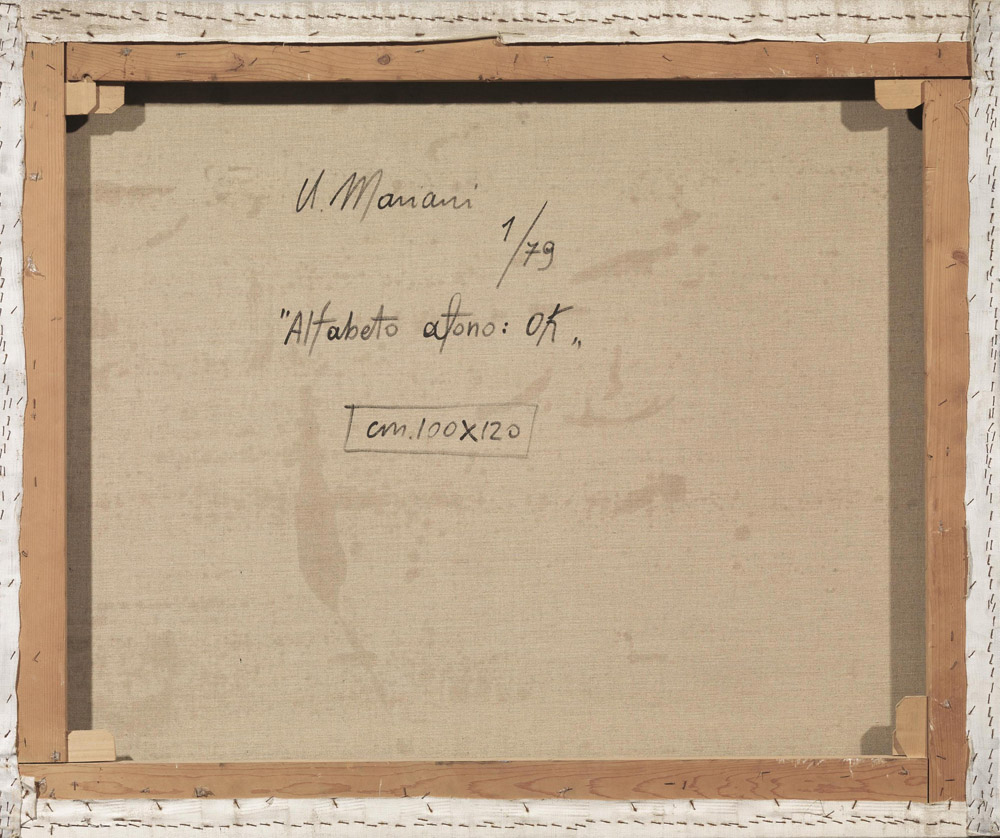 U. Mariani
1/79
"Alfabeto afono: OK„
cm. 100X120